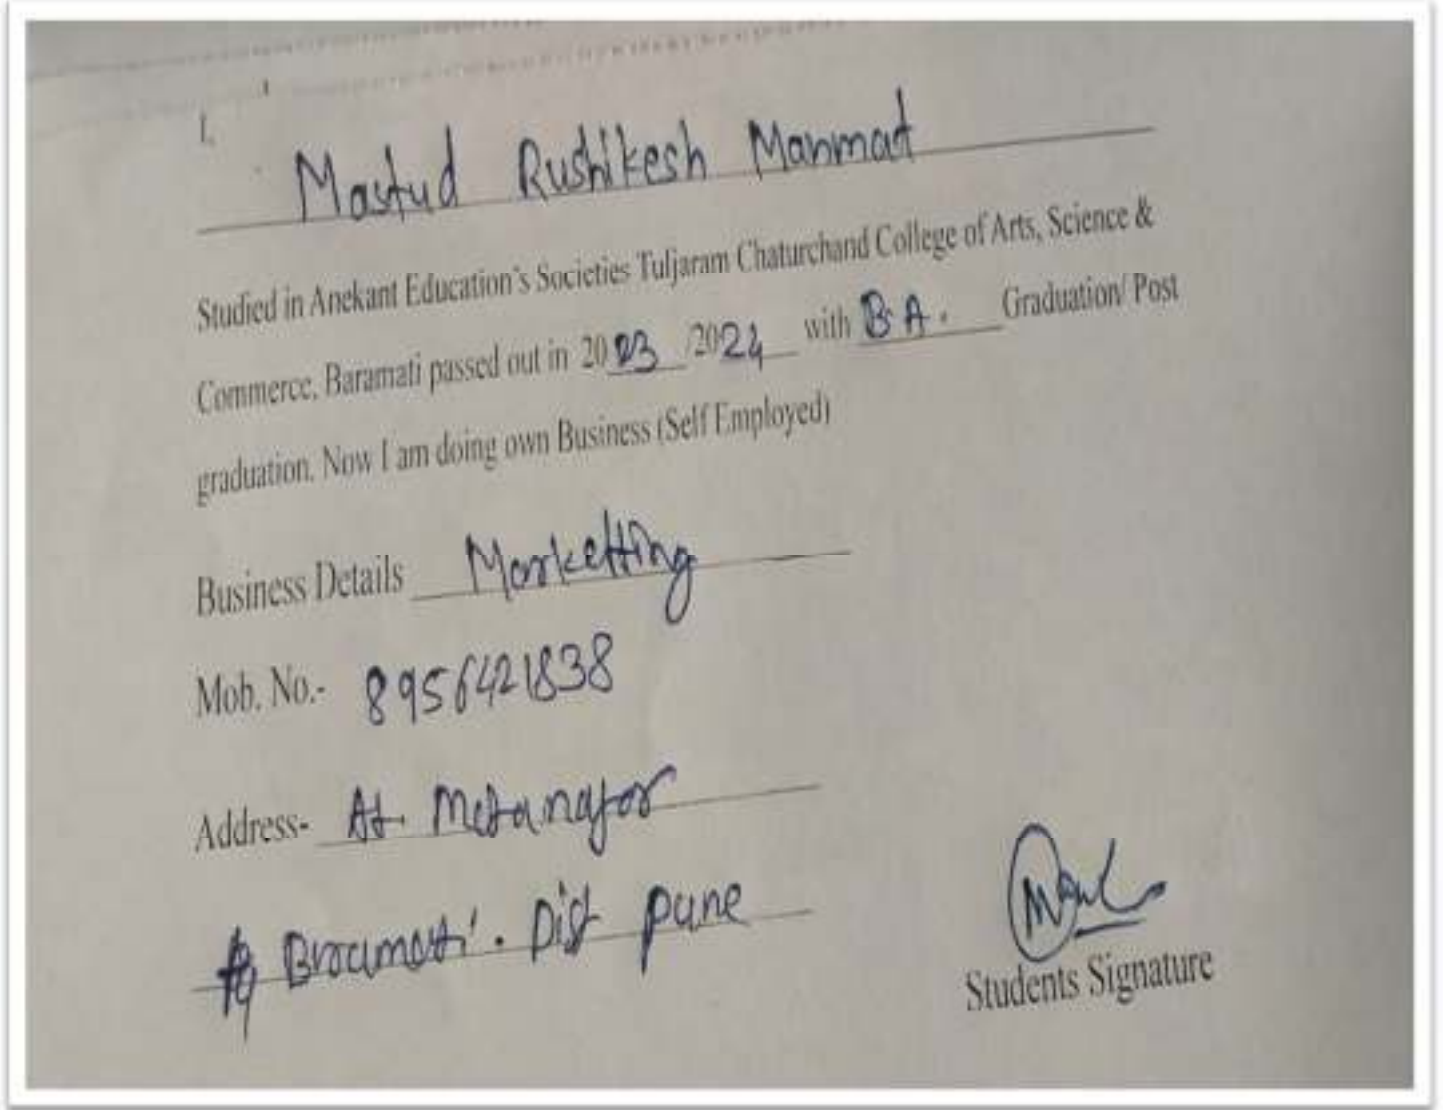 I,
Mastud Rushikesh Manmat
Studied in Anekant Education's Societies Tuljaram Chaturchand College of Arts, Science &
Commerce, Baramati passed out in 2023/2024 with B.A. Graduation/ Post
graduation. Now I am doing own Business (Self Employed)
Business Details Marketting
Mob. No.- 8956421838
Address- At.
Baramati. Dist pune
Students Signature